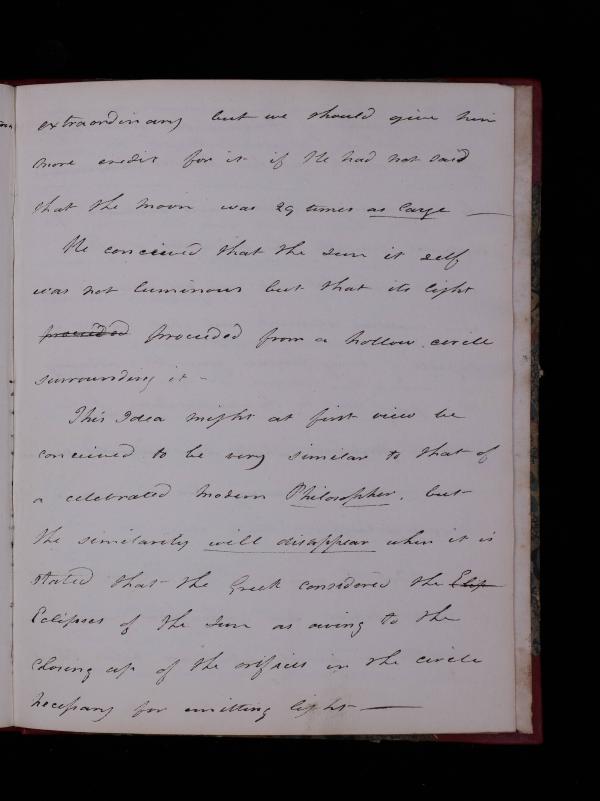 extraordinary but we should give him
more credit for it if He had not said
that the moon was 29 times as large —
He conceived that the Sun it self
was not luminous but that its light
proceeded proceeded from a hollow circle
surrounding it -
This Idea might at first view be
conceived to be very similar to that of
a celebrated modern Philosopher. but
the similarity will disappear when it is
stated that the Greek considered the Elip
Eclipses of the Sun as owing to the
closing up of the orifices in the circle
necessary for emitting light —